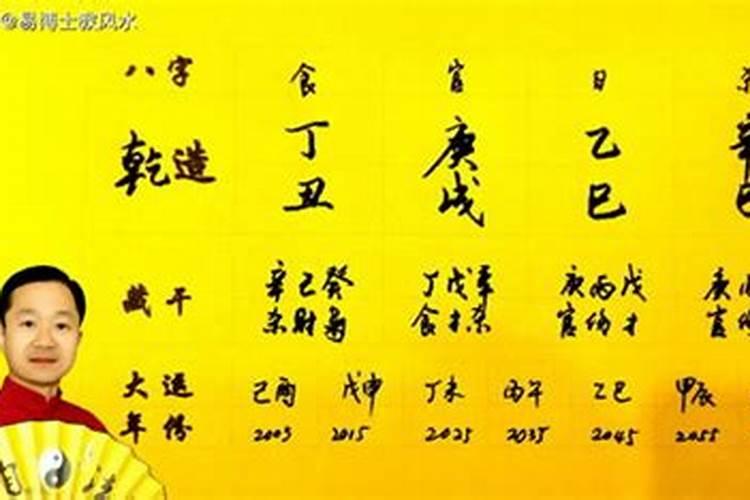 @易博士教风水
八字 食 官 日 杀
丁 庚 乙 辛
乾造
丑 戌 巳 巳
辛己癸 丁戊辛 庚丙戊 庚
藏干
杀财枭 食才杀 官伤才 官
大运 己酉 戊申 丁未 丙午 乙巳 甲辰
年份 2005 2015 2025 2035 2045 2055